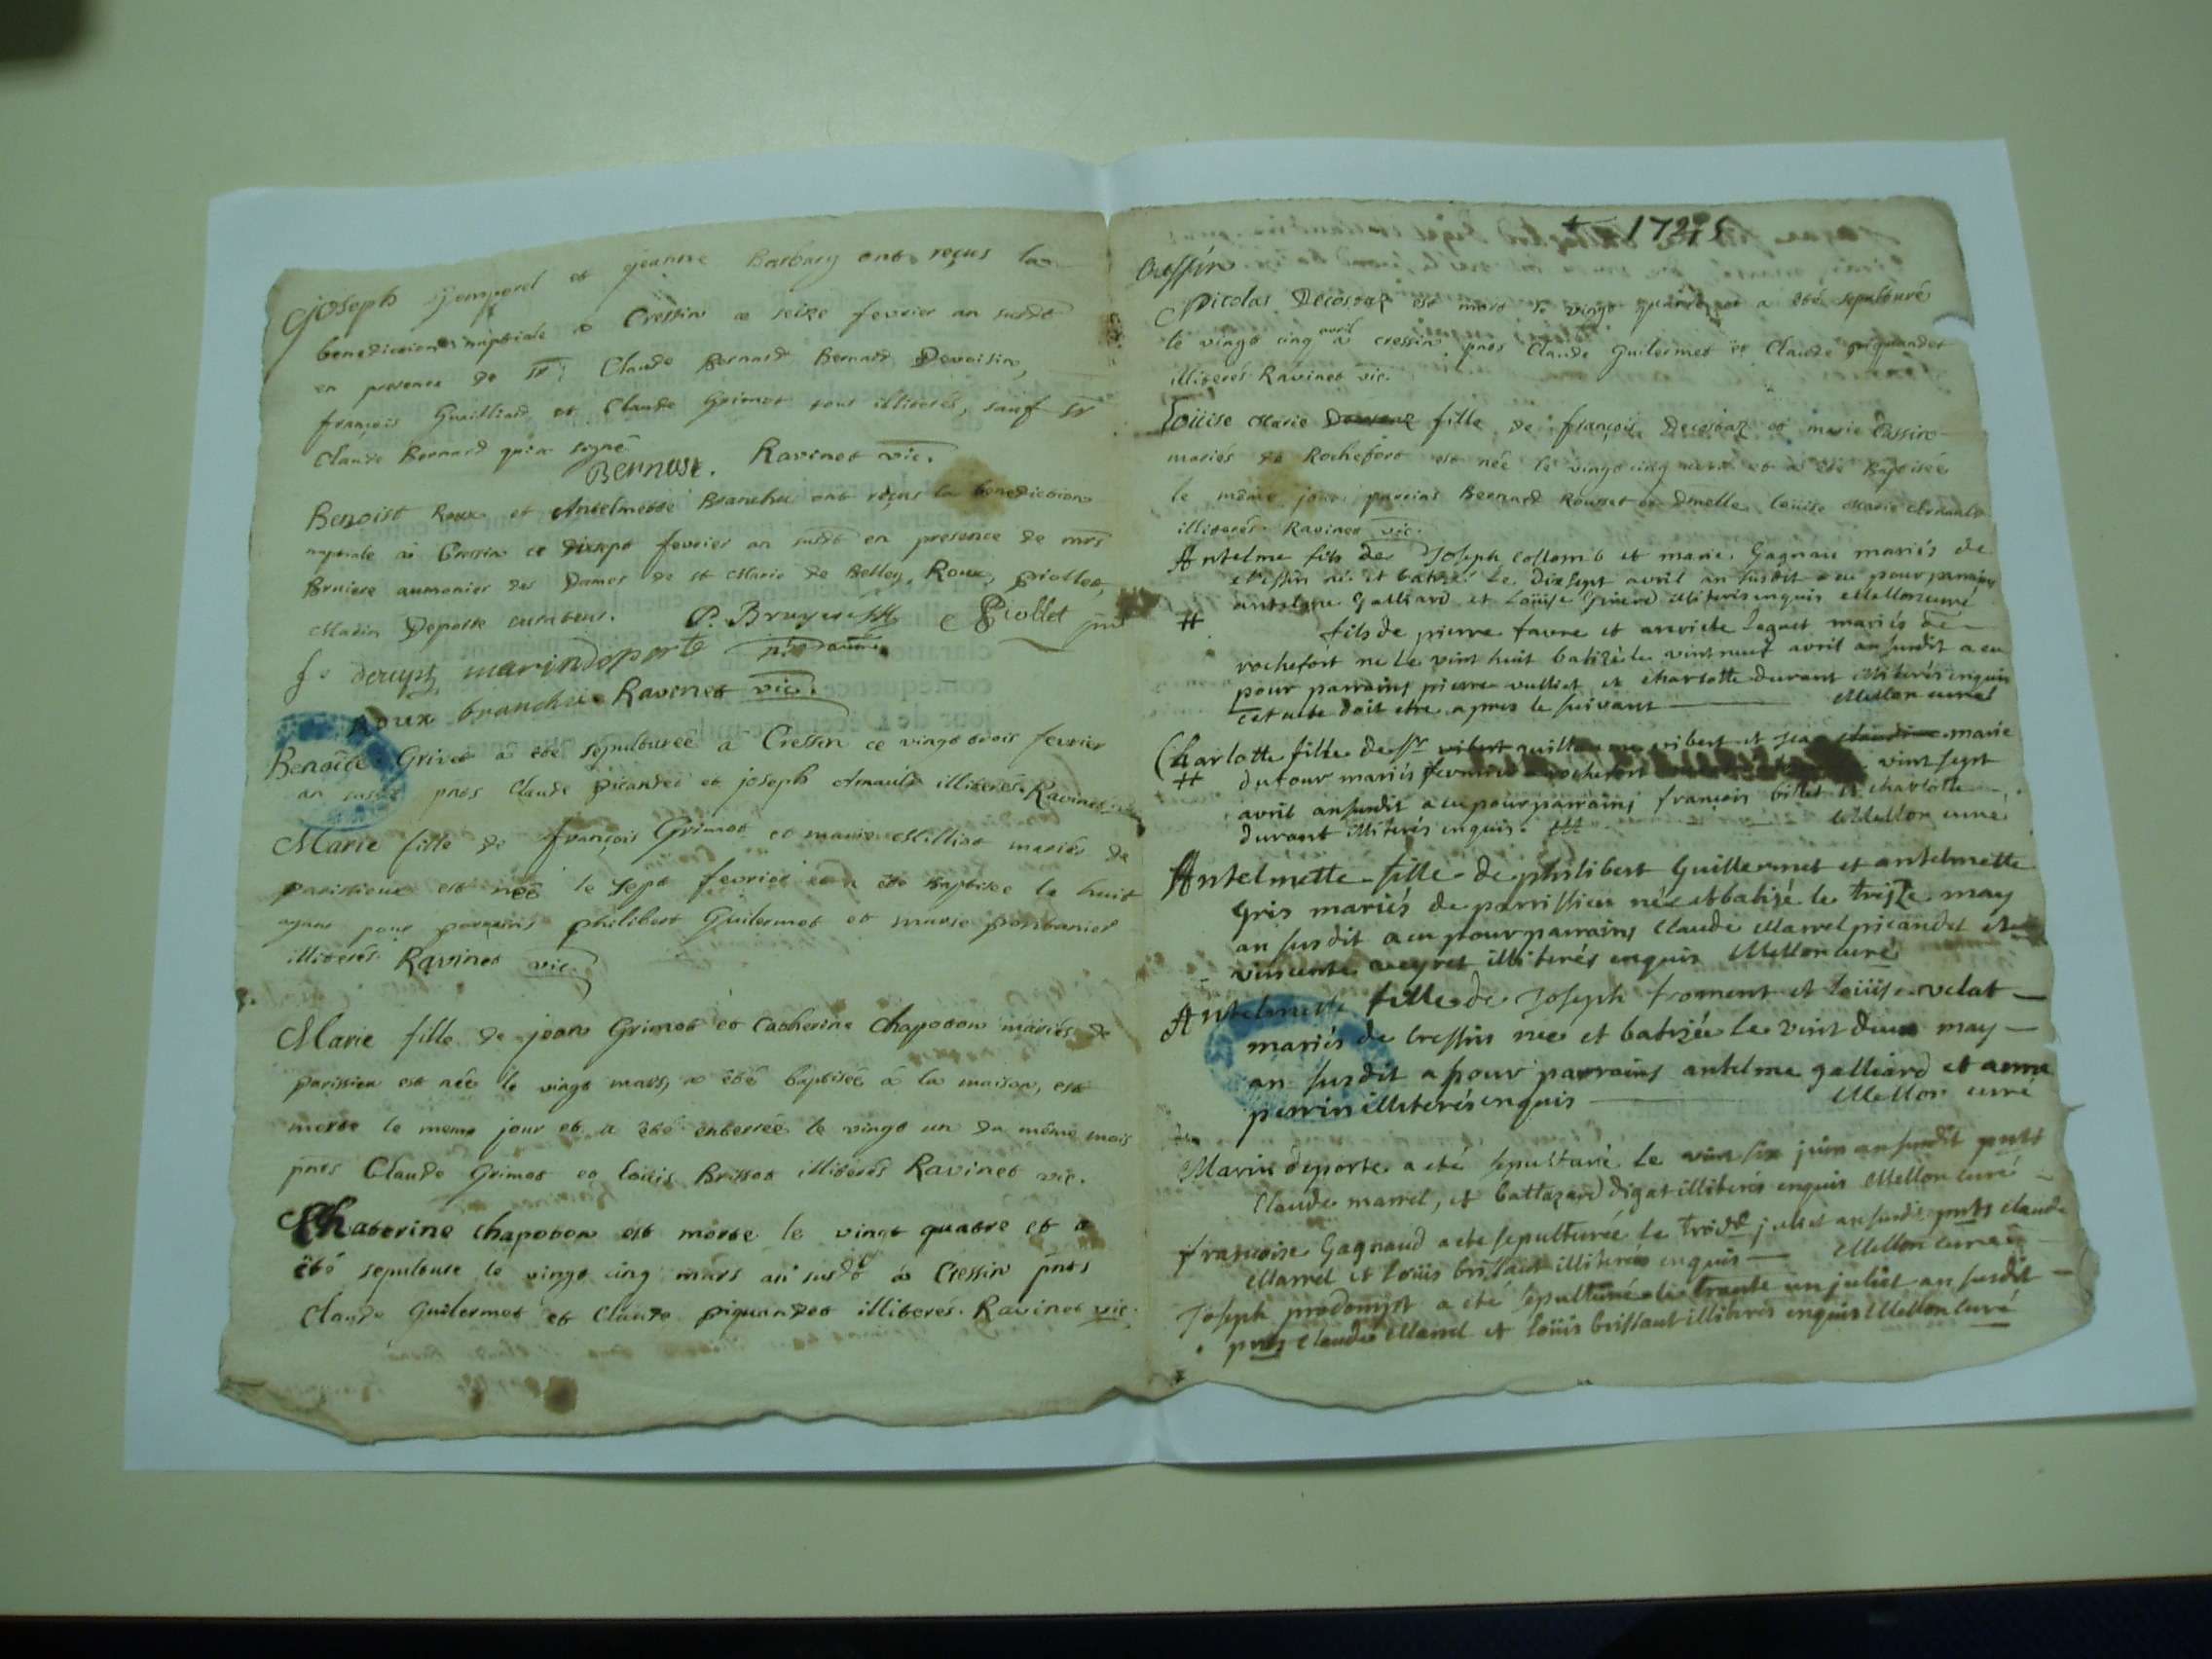 Joseph et jeanne Barbary ont reçus la
benediction nuptiale a Cressin ce seize fevrier an susdt
en presence de Sr Claude Bernard Bernard Devoisin,
françois et Claude Grimot tous illiterés, sauf Sr
Claude Bernard qui a signé
Bernard. Ravinet vic.
Benoist Roux et Antelmette Branche ont reçus la benediction
nuptiale a Cressin ce dixsept fevrier an susdt en presence de mrs
Bruiere aumonier des Dames de st Marie de Belley, Roux, piollet,
Marin Deporte curateur. P. Bruyere Piollet
marindeporte
Roux branche Ravinet vic.
Benoite Grivet a été sepulturée a Cressin ce vingt trois fevrier
an susdt pnts Claude Picandet et joseph Arnauld illiterés. Ravinet vic
Marie fille de françois Grimot et marie Milliet mariés de
parissieux est née le sept fevrier et a été Baptisée le huit
ayant pour parrains philibert Guilermet et marie pontanier
illiterés. Ravinet vic.
Marie fille de jean Grimot et Catherine Chapoton mariés de
parissieu est née le vingt mars, a été baptisée à la maison, est
morte le meme jour et a été enterrée le vingt un du même mois
pnts Claude Grimot et louis Brissot illiterés Ravinet vic.
Chaterine Chapoton est morte le vingt quatre et a
été sepulture le vingt cinq mars an susdt a Cressin pnts
Claude Guilermet et Claude piquandet illiterés. Ravinet vic.
Cressin
Nicolas Decostaz est mort le vingt quatre et a été sepulturé
le vingt cinq avril a cressin pnts Claude Guilermet et Claude piquandet
illiterés Ravinet vic.
Loüise Marie fille de françois Decostaz et marie Cassin
mariés de Rochefort est née le vingt cinq et a été Baptisée
le même jour parrins Bernard Rousset et Dmelle loüise Marie
illiterés. Ravinet vic.
Antelme fils de Joseph Collomb et marie Gagnaie mariés de
Cressin né et batizé le dixsept avril an susdit a eu pour parrains
antelme Galliard et Loüise illiterés enquis Mellon curé
# fils de pierre favre et mariés de
rochefort né le vint huit batizé le vint neuf avril an susdit a eu
pour parrains pierre vulliet et charlotte durant illiterés enquis
cet acte doit etre apres le suivant Mellon curé
Charlotte fille de sr vibert guillaume vibert et marie
# dufour mariés rochefort vint sept
avril an susdit a eu pour parrains françois billet et charlotte
durant illiterés enquis. Mellon curé
Antelmette fille de philibert Guillermet et antelmette
Gris mariés de parrissieu née et batizé le treize may
an susdit a eu pour parrains Claude Marrel picandet et
vincente veyret illiterés enquis Mellon curé
Antelmette fille de Joseph froment et Loüise velat
mariés de Cressin née et batizée le vint deux may
an susdit a pour parrains antelme galliard et anne
perrin illiterés enquis Mellon curé
Marin deporte a eté sepulturé le vint six juin an susdit pnts
Claude marrel, et baltazard digat illiterés enquis Mellon curé
françoise Gagnaud a eté sepulturée le juliet an susdit pnts claude
Marrel et Loüis brissaut illiterés enquis Mellon curé
Joseph prodomyst a eté sepulturé le trante un juliet an susdit
pnts Claude Marrel et Loüis brissaut illiterés enquis Mellon curé